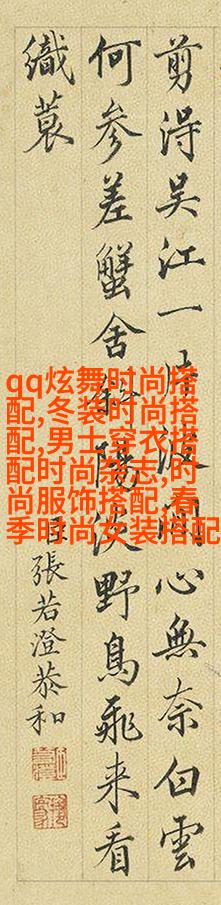 剪淂吴江一波心無奈白雲
何参差蟹舍陽淡野鳥飛来看
織蓑
臣張若澄恭和
qq炫舞时尚搭
配,冬装时尚搭
配,男士穿衣搭
配时尚杂志,时
尚服饰搭配,春
季时尚女装搭配